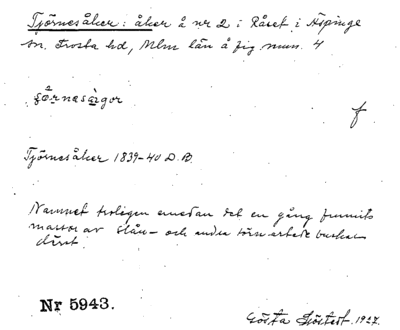 Tjörnesåker: åker å nr 2 i Råset i Äspinge
sn. Frosta hd, Mlm län å fig. num. 4
f
Tjörnesåker 1839-40 D.B.
Namnet troligen emedan det en gång funnits
massor av slån- och andra törnartade buskar
därst.
Nr 5943.
Gösta Sjöstedt. 1927.